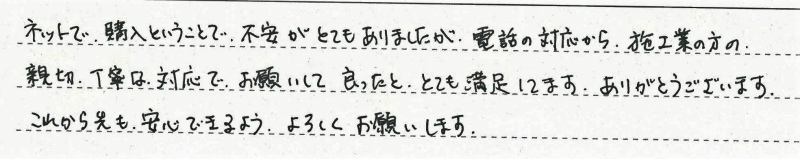 ネットで、購入ということで、不安がとてもありましたが、電話の対応から、施工業の方の、
親切、丁寧な対応で、お願いして良ったと、とても満足してます。ありがとうございます。
これから先も、安心できるよう、よろしくお願いします。